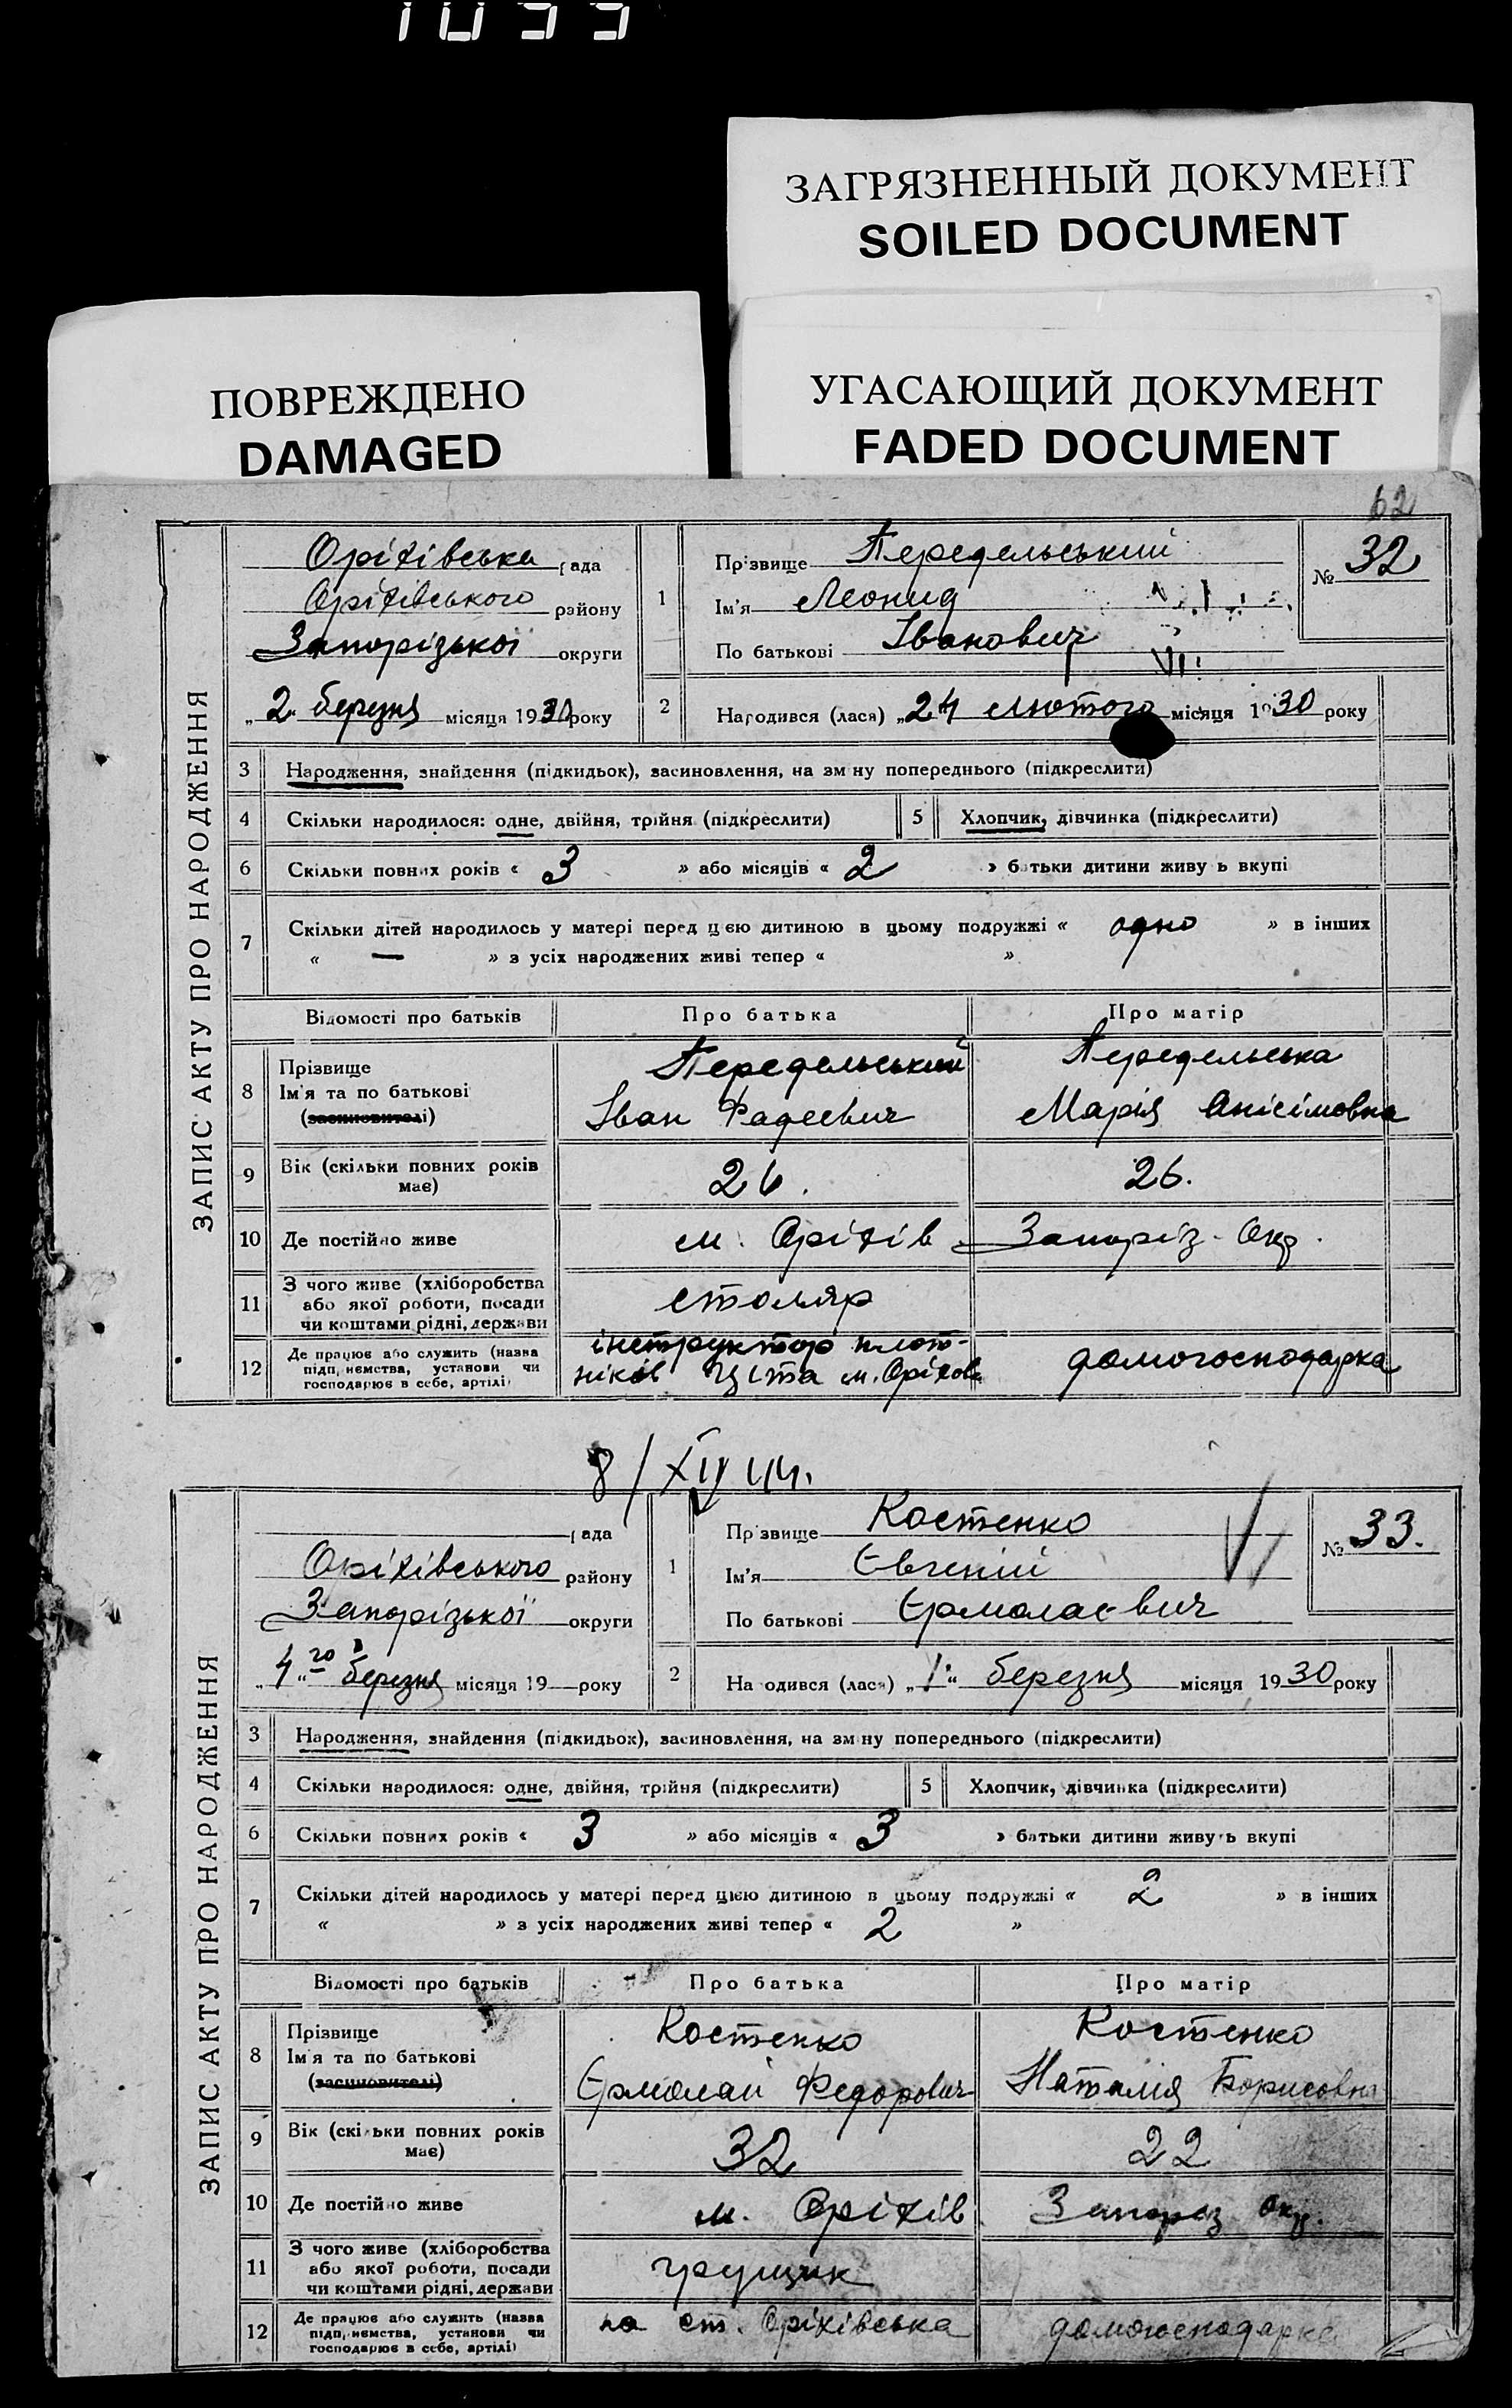 1099
ЗАГРЯЗНЕННЫЙ ДОКУМЕНТ
SOILED DOCUMENT
ПОВРЕЖДЕНО
DAMAGED
УГАСАЮЩИЙ ДОКУМЕНТ
FADED DOCUMENT
62
ЗАПИС АКТУ ПРО НАРОДЖЕННЯ
Оріхівська рада
Оріхівського району
Запорізької округи
„2" березня місяця 1930 року
1 Прізвище Передельський
Ім'я Леонид
По батькові Іванович
№ 32
2 Народився (лася) „24 лютого місяця 1930 року
3 Народження, знайдення (підкидьок), засиновлення, на зміну попереднього (підкреслити)
4 Скільки народилося: одне, двійня, трійня (підкреслити) 5 Хлопчик, дівчинка (підкреслити)
6 Скільки повних років « 3 » або місяців « 2 » батьки дитини живуть вкупі
7 Скільки дітей народилось у матері перед цією дитиною в цьому подружжі « одно » в інших
« — » з усіх народжених живі тепер « »
Відомості про батьків Про батька Про матір
8 Прізвище Передельський Передельська
Ім'я та по батькові Іван Фадеевич Марія Анісімовна
(засиновителі)
9 Вік (скільки повних років має) 26. 26.
10 Де постійно живе м. Оріхів Запоріз. Окр.
11 З чого живе (хліборобства
або якої роботи, посади столяр
чи коштами рідні, держави
12 Де працює або служить (назва інструктор плот-
підприємства, установи чи ників Ціта м. Оріхов домогосподарка
господарює в себе, артілі)
8/XIу 44.
ЗАПИС АКТУ ПРО НАРОДЖЕННЯ
рада
Оріхівського району
Запорізької округи
„4"го березня місяця 19— року
1 Прізвище Костенко
Ім'я Євгеній
По батькові Єрмолаєвич
№ 33.
2 Народився (лася) „1" березня місяця 1930 року
3 Народження, знайдення (підкидьок), засиновлення, на зміну попереднього (підкреслити)
4 Скільки народилося: одне, двійня, трійня (підкреслити) 5 Хлопчик, дівчинка (підкреслити)
6 Скільки повних років « 3 » або місяців « 3 » батьки дитини живуть вкупі
7 Скільки дітей народилось у матері перед цією дитиною в цьому подружжі « 2 » в інших
« » з усіх народжених живі тепер « 2 »
Відомості про батьків Про батька Про матір
8 Прізвище Костенко Костенко
Ім'я та по батькові Єрмолай Федорович Наталія Борисовна
(засиновителі)
9 Вік (скільки повних років має) 32 22
10 Де постійно живе м. Оріхів Запоріз окр.
11 З чого живе (хліборобства
або якої роботи, посади грузщик
чи коштами рідні, держави
12 Де працює або служить (назва
підприємства, установи чи на ст. Оріхівська домогосподарка
господарює в себе, артілі)